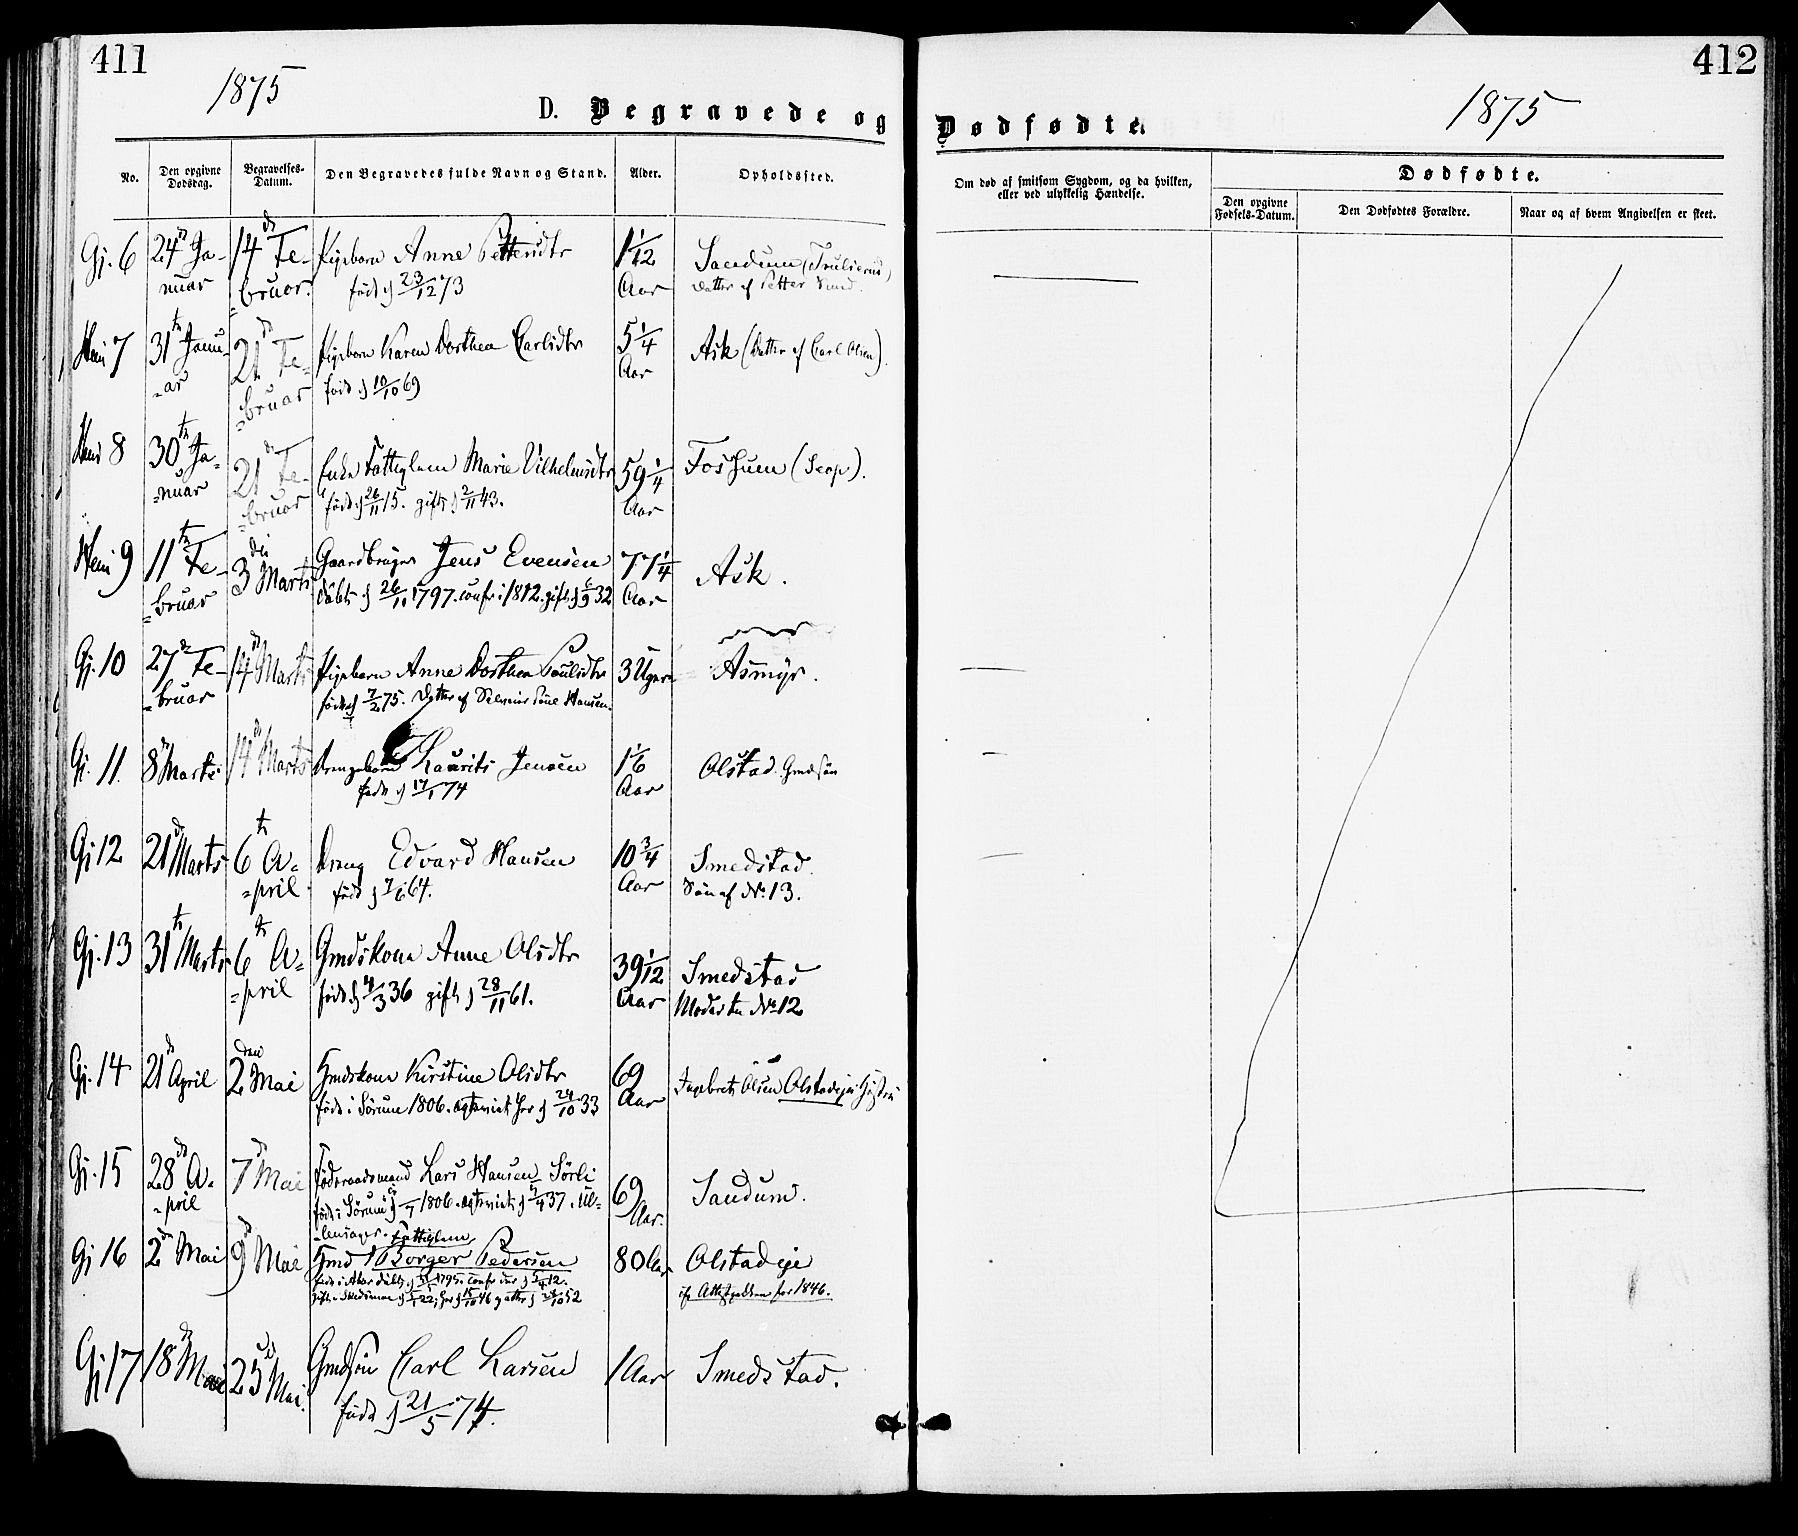 411
1875
D. Begravede og
No.
Den opgivne Dødsdag.
Begravelses-Datum.
Den Begravedes fulde Navn og Stand.
Alder.
Opholdssted.
Gj. 6
24d Ja-
nuar
14d Fe-
bruar.
Pigebarn Anne Pettersdtr
født d 23/12 73
1 1/12
Aar
Sandum
Datter af Petter
7
31te Janu-
ar
21d Fe-
bruar
Pigebarn Karen Dorthea Carlsdtr
født d 10/10 69
5 1/4
Aar
Ask (Datter af Carl Olsen).
8
30te Ja-
nuar
21d Fe-
bruar
Enke Fattiglem Marie Vilhelmsdtr
født d 26/11 15. gift d 2/11 43.
59 1/4
Aar
Fossum
9
11te Fe-
bruar
3die Marts
Gaardbruger Jens Evensen
døbt d 26/11 1797. confr i 1812. gift d 32
77 1/4
Aar
Ask.
Gj. 10
27d Fe-
bruar
14d Marts
Pigebarn Anne Dorthea Poulsdtr
født d 7/2 75. Datter af Hansen.
3 Uger
Asmyr.
Gj. 11.
8d Marts
14d Marts
Drengebarn Laurits Jensen
født d 17/1 74
1 1/6
Aar
Olstad. Gmdsøn
Gj 12
21d Marts
6te A-
pril
Dreng Edvard Hansen
født d 7/6 64.
10 3/4
Aar
Smedstad.
Søn af No. 13.
Gj. 13
31te Marts
6te A-
pril
Gmdskone Anne Olsdtr
født d 4/3 36 gift d 28/11 61.
39 1/12
Aar
Smedstad
Moder til No 12
Gj. 14
21d April
den
2 Mai
Gmdskone Kirstine Olsdtr
født i Sørum 1806. egteviet her d 24/10 33
69
Aar
Ingebret Olsen Olstadeje
Gj. 15
28d A-
pril
7d Mai
Føderaadsmand Lars Hansen Sørli
født i Sørum 1806. egteviet d 37. Ul-
lensager.
69
Aar.
Sandum.
Gj 16
2d Mai
9d Mai
Fattiglem
Gmd Borger Pedersen
80 Aar
Olstadeje
for 1846.
Gj 17
18d Mai
23d Mai.
Gmdsøn Carl Larsen
født d 21/5 74.
1 Aar
Smedstad.
412
1875
Dødfødte.
Om død af smitsom Sygdom, og da hvilken,
eller ved ulykkelig Hændelse.
Dødfødte.
Den opgivne
Fødsels-Datum.
Den Dødfødtes Forældre.
Naar og af hvem Angivelsen er skeet.